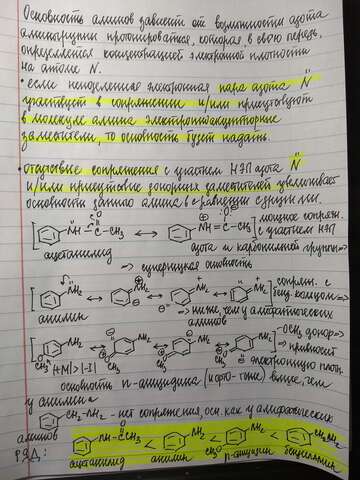 Основность аминов зависит от возможности азота
аминогруппы протонироваться, которая, в свою очередь,
определяется концентрацией электронной плотности
на атоме N.
• если неподеленная электронная пара азота N̈
участвует в сопряжении и/или присутствуют
в молекуле амина электроноакцепторные
заместители, то основность будет падать.
• отсутствие сопряжения с участием НЭП азота N̈
и/или присутствие донорных заместителей увеличивает
основность данного амина в сравнении с другими.
NH – C – CH₃ ↔ NH = C – CH₃
O
мощное сопряж.
с участием НЭП
ацетанилид
азота и карбонильной группы =>
=> суперницкая основность
NH₂ ↔ NH₂ ↔ NH₂ ↔ NH₂
сопряж. с
бенз. кольцом =>
анилин
=> ниже, чем у алифатических
аминов
NH₂ ↔ NH₂ ↔ NH₂ ↔ NH₂
-OCH₃ донор =>
=> привносит
OCH₃
|+M| > |-I|
электронную плотн.
основность n-анизидина выше, чем
у анилина
CH₂-NH₂ - нет сопряжения, осн. как у алифатических
аминов
РЯД:
NH-C-CH₃ < NH₂ < NH₂ < CH₂NH₂
ацетанилид анилин CH₃O n-анизидин бензиламин